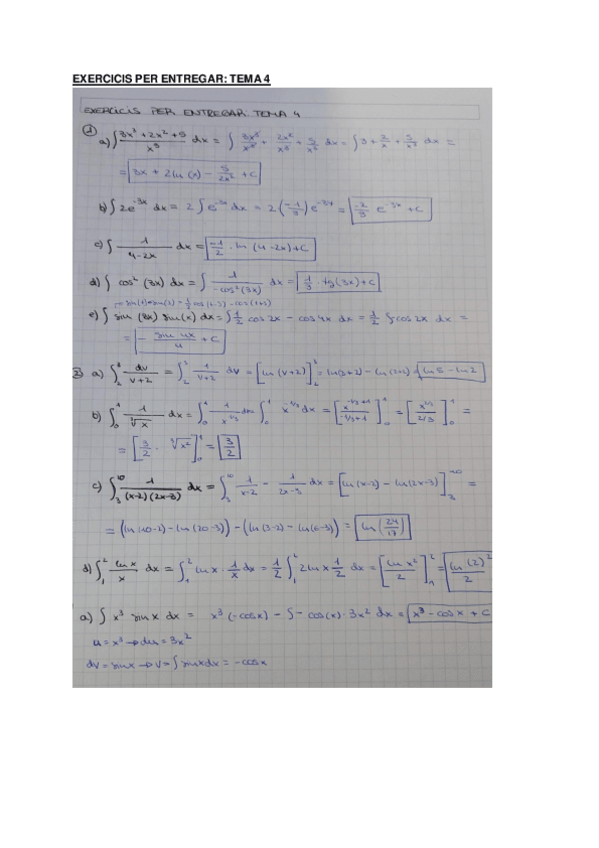 EXERCICIS PER ENTREGAR: TEMA 4
EXERCICIS PER ENTREGAR: TEMA 4
① a) ∫ (3x³ + 2x² + 5)/x³ dx = ∫ 3x³/x³ + 2x²/x³ + 5/x³ dx = ∫ 3 + 2/x + 5/x³ dx =
= 3x + 2ln(x) - 5/2x² + C
b) ∫ 2e^-3x dx = 2 ∫ e^-3x dx = 2(-1/3) e^-3x = -2/3 e^-3x + C
c) ∫ 1/(4-2x) dx = -1/2 · ln(4-2x) + C
d) ∫ cos²(3x) dx = ∫ 1/(-cos²(3x)) dx = 1/3 · tg(3x) + C
e) ∫ sin(3x) sin(x) dx = ∫ 1/2 cos 2x - cos 4x dx = 1/2 ∫ cos 2x dx =
= - sin 4x/4 + C
② a) dv/(v+2) = 1/(v+2) dv = [ln(v+2)] = ln(3+2) - ln(2+2) = ln 5 - ln 2
b) ∫₀¹ 1/∛x dx = ∫₀¹ 1/x^1/3 dx ∫₀¹ x^-1/3 dx = [x^-1/3+1 / -1/3+1]₀¹ = [x^2/3 / 2/3]₀¹ =
= [3/2 · ∛x²]₀¹ = 3/2
c) ∫₃¹⁰ 1/((x-2)(2x-3)) dx = ∫₃¹⁰ 1/(x-2) - 1/(2x-3) dx = [ln(x-2) - ln(2x-3)]₃¹⁰ =
= (ln(10-2) - ln(20-3)) - (ln(3-2) - ln(6-3)) = ln(24/17)
d) ∫₁² ln x/x dx = ∫₁² ln x · 1/x dx = 1/2 ∫₁² 2 ln x 1/2 dx = [ln x²/2]₁² = ln(2)²/2
a) ∫ x³ sin x dx = x³(-cos x) - ∫ -cos(x) · 3x² dx = x³ - cos x + C
u = x³ → du = 3x²
dv = sin x → v = ∫ sin x dx = -cos x